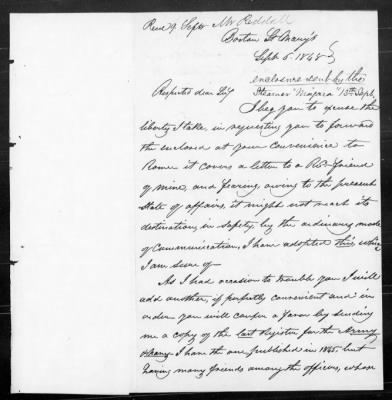 Recd 9. Sept Mr Reddall
Boston St Mary's
Sept 5. 1848
enclosure sent by this
Steamer "Niagara" 13th Sept
Respected dear Sir
I beg you to excuse the
liberty I take, in requesting you to forward
the enclosed at your convenience to
Rome it covers a letter to a Revd friend
of mine, and fearing owing to the present
State of affairs, it might not reach its
destination in safety, by the ordinary mode
of Communication, I have adopted this, which
I am sure of
As I had occasion to trouble you I will
add another, if perfectly convenient and in
order you will confer a favor by sending
me a copy of the last Register for the Army
& Navy. I have the one published in 1845. but
having many friends among the officers, whose